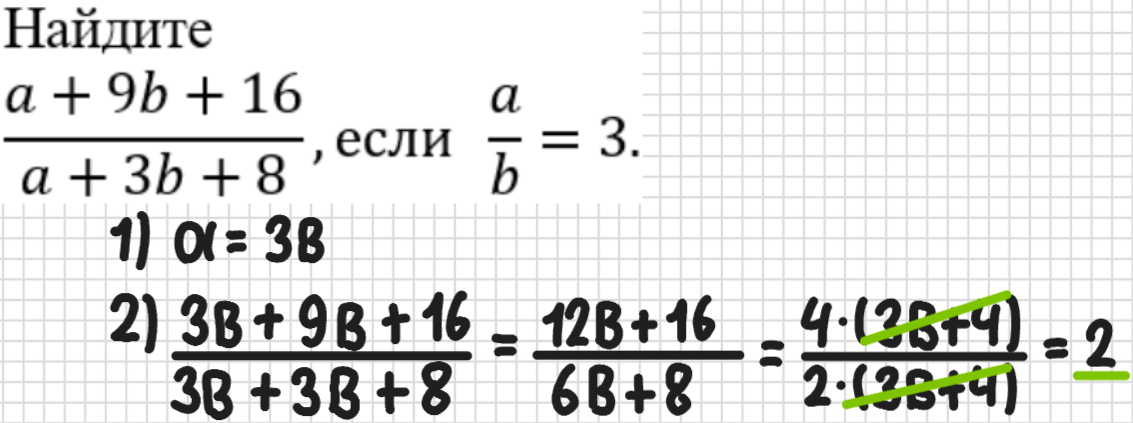 Найдите
a + 9b + 16 / a + 3b + 8 , если a / b = 3.
1) a = 3в
2) 3в + 9в + 16 / 3в + 3в + 8 = 12в + 16 / 6в + 8 = 4·(3в+4) / 2·(3в+4) = 2